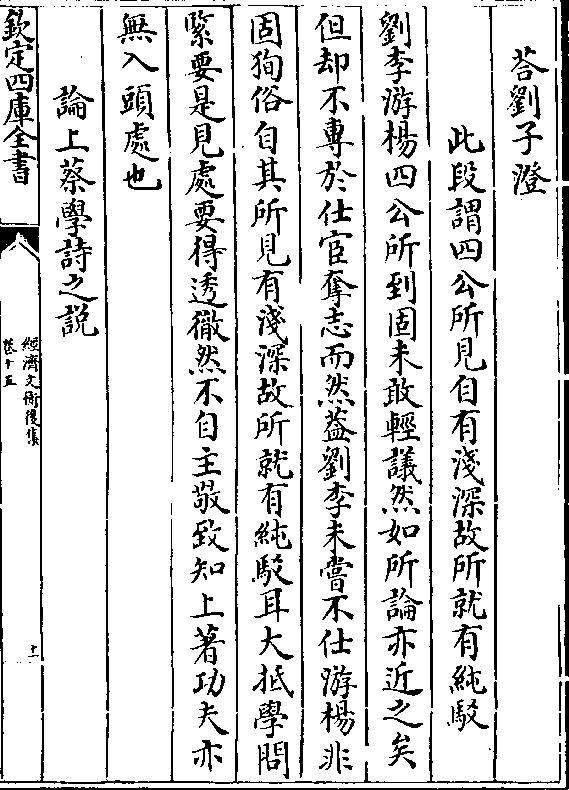 荅劉子澄
此段謂四公所見自有淺深故所就有純駁
劉李游楊四公所到固未敢輕議然如所論亦近之矣
但却不専於仕宦奪志而然葢劉李未嘗不仕游楊非
固狥俗自其所見有淺深故所就有純駁耳大抵學問
緊要是見處要得透徹然不自主敬致知上著功夫亦
無入頭處也
論上蔡學詩之説
欽定四庫全書
經濟文衡後集
卷十五
十一